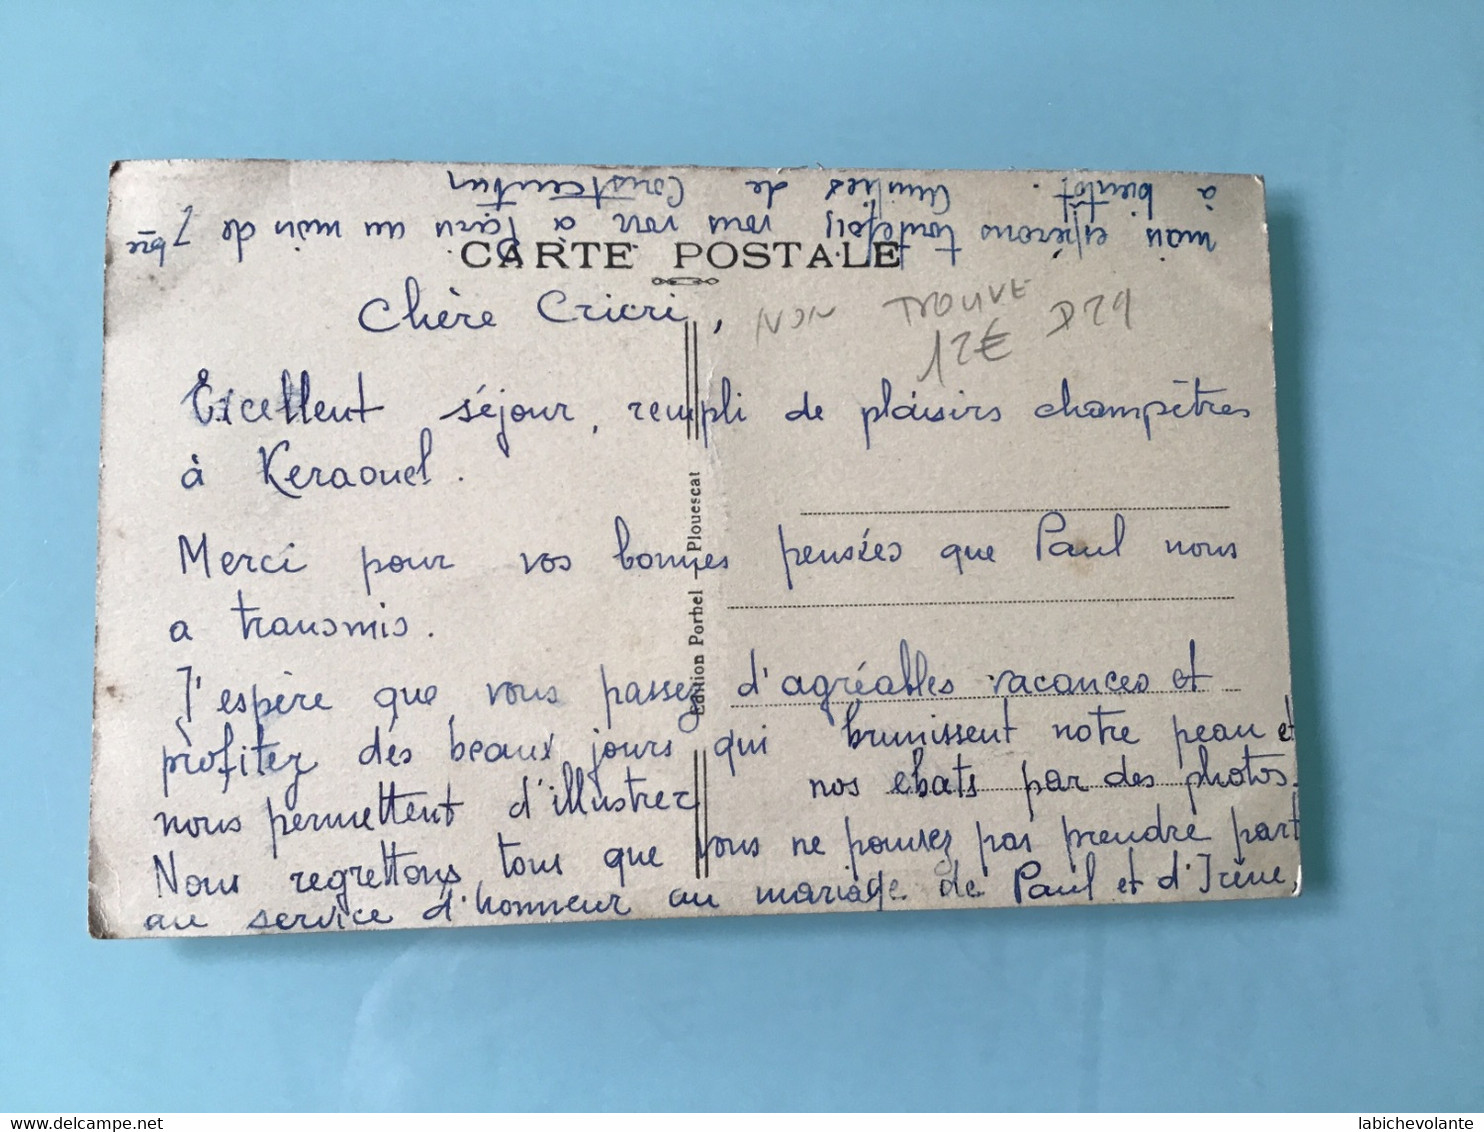 CARTE POSTALE
Chère Cricri,
NON TROUVE
12€ D29
Excellent séjour, rempli de plaisirs champêtres
à Keraouel.
Merci pour vos bonnes pensées que Paul nous
a transmis.
J'espère que vous passez d'agréables vacances et
profitez des beaux jours qui brunissent notre peau et
nous permettent d'illustrer nos ebats par des photos.
Nous regrettons tous que vous ne pouvez pas prendre part
au service d'honneur au mariage de Paul et d'Irène,
mais espérons toutefois vous voir a Paris au mois de 7bre
à bientôt. Amitiés de
Edition Porbel — Plouescat
labichevolante